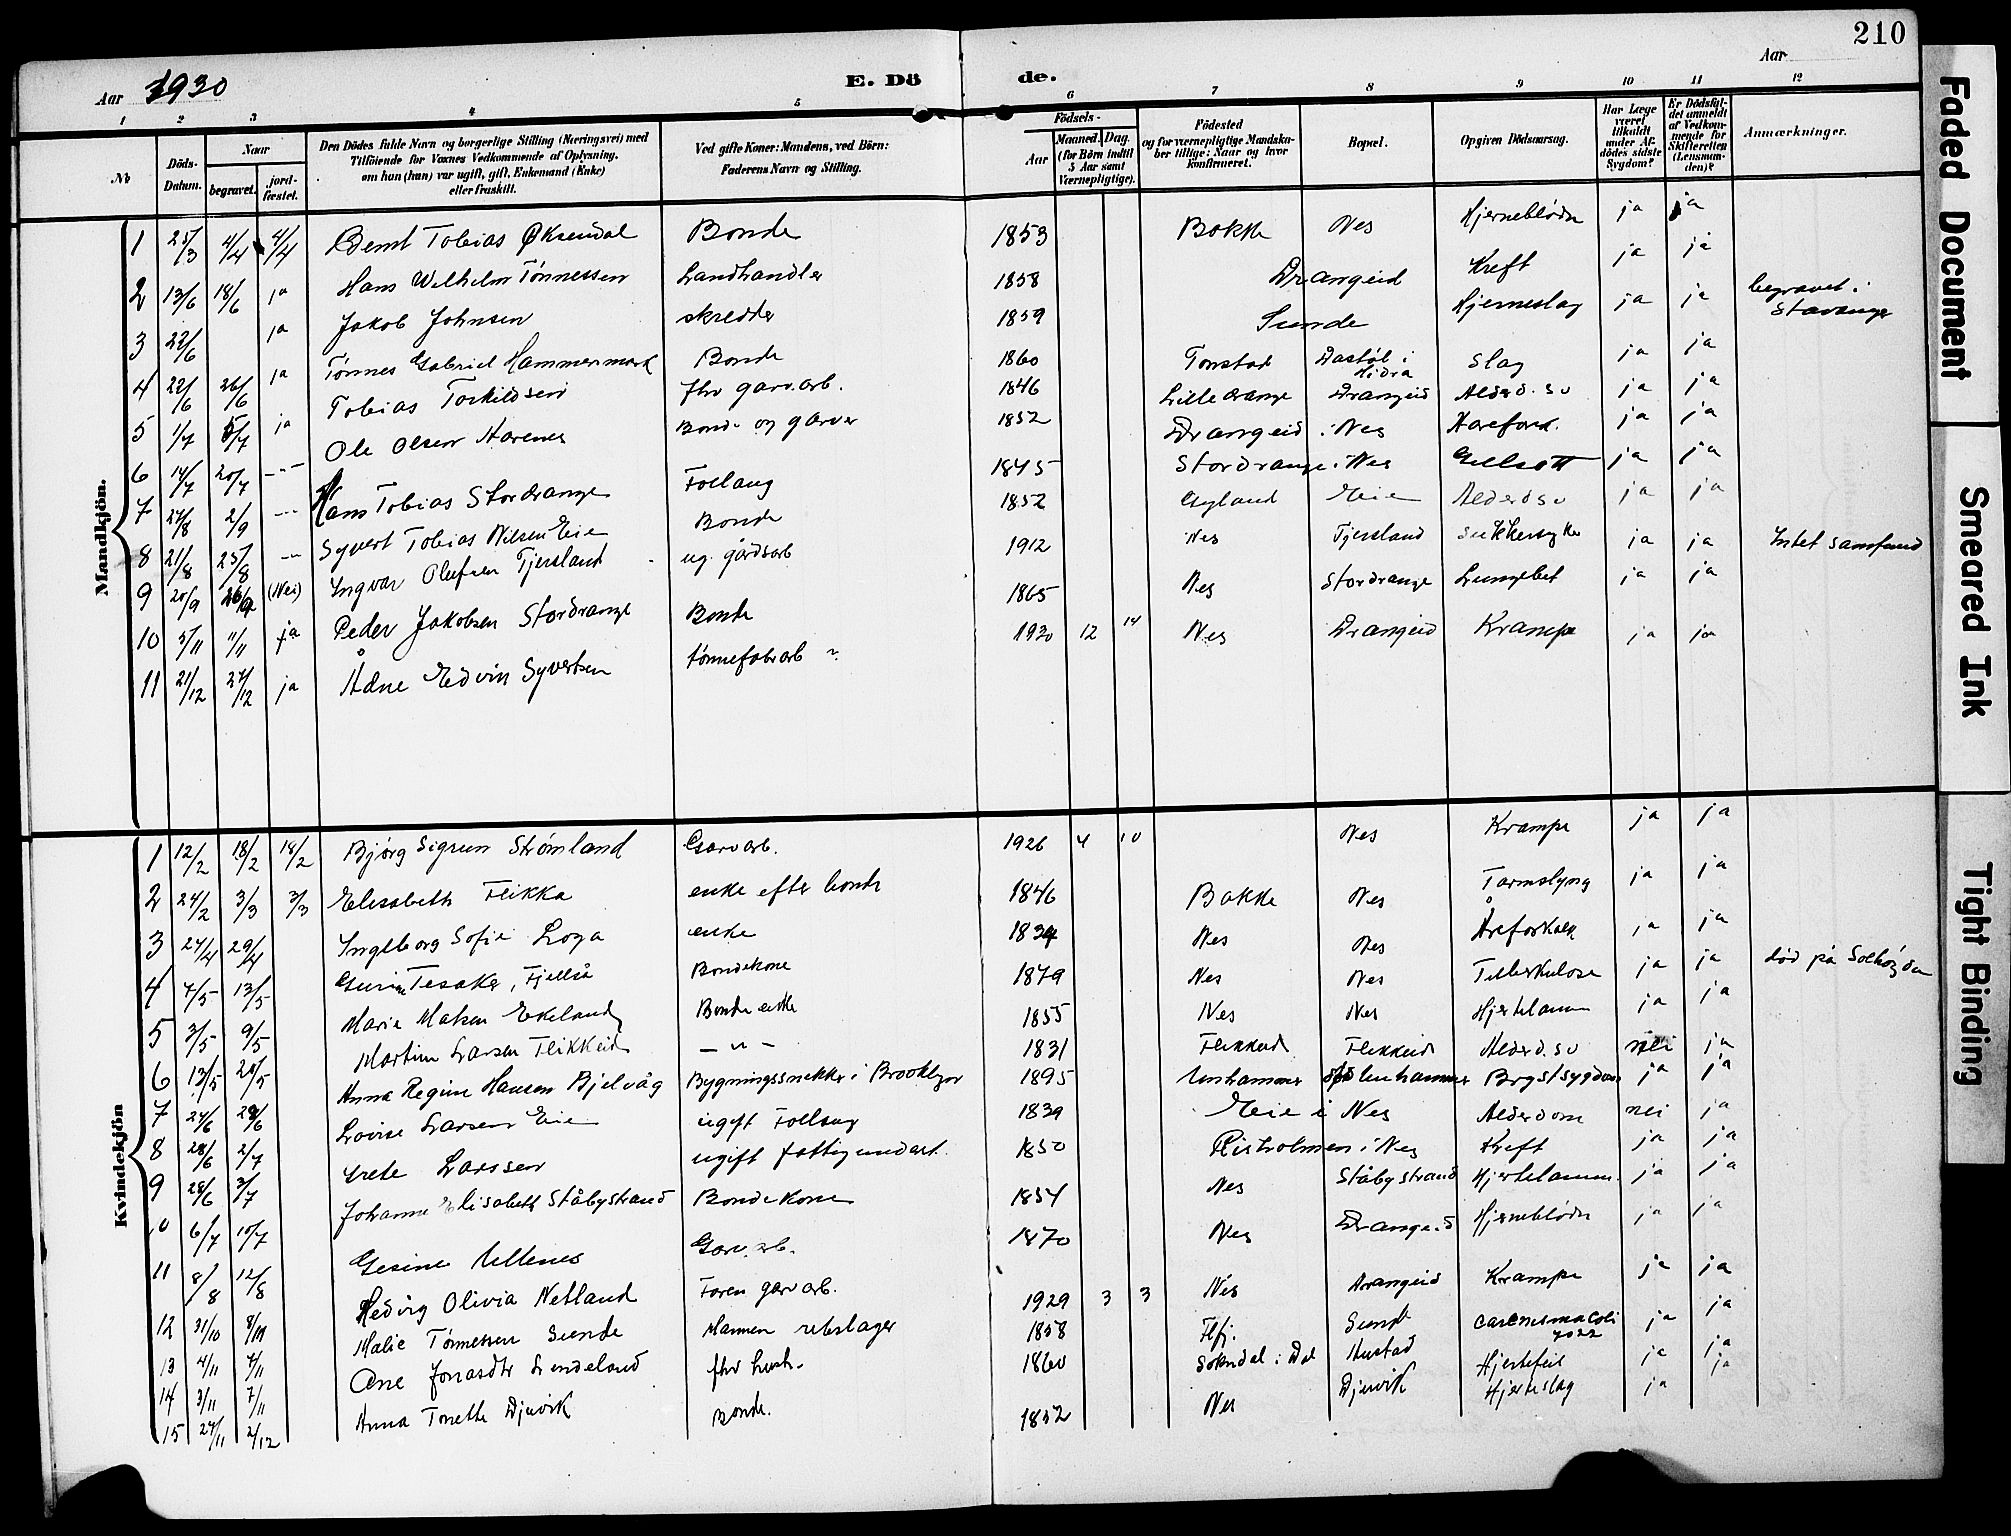 210
Aar 1930 E. Döde. Aar
1 2 3 4 5 6 7 8 9 10 11 12
No
Döds-Datum.
Naar
begravet. jordfæstet.
Den Dödes fulde Navn og borgerlige Stilling (Næringsvei) med
Tilföiende for Voxnes Vedkommende af Oplysning,
om han (hun) var ugift, gift, Enkemand (Enke)
eller fraskilt.
Ved gifte Koner: Mandens, ved Börn:
Faderens Navn og Stilling.
Födsels-
Aar Maaned. Dag.
(for Börn indtil
5 Aar samt
Værnepligtige).
Födested
og for værnepligtige Mandskaber tillige: Naar og hvor
konfirmeret.
Bopæl.
Opgiven Dödsaarsag.
Har Læge
været
tilkaldt
under Afdödes sidste
Sygdom?
Er Dödsfaldet anmeldt
af Vedkommende for
Skifteretten
(Lensmanden)?
Anmærkninger.
Mandkjön.
1 25/3 4/4 4/4 Bernt Tobias Øksendal Bonde 1853 Bakke Nes Hjerneblödn ja ja
2 13/6 18/6 ja Hans Wilhelm Tönnessen Landhandler 1858 Drangeid Kreft ja ja
3 22/6 ja Jakob Johnsen skredder 1859 Sunde Hjerneslag ja ja begravet i Stavanger
4 22/6 26/6 ja Tönnes Gabriel Hammersmark Bonde 1860 Tonstad Dastöl i Hidra Slag ja ja
5 1/7 5/7 ja Tobias Torkildsen fhv garv.arb. 1846 Lilledrange Drangeid Alderd.sv ja ja
6 14/7 20/7 -"- Ole Olsen Bonde og garver 1852 Drangeid i Nes ja ja
7 27/8 2/9 -"- Hans Tobias Stordrange Follaug 1845 Stordrange i Nes Gulsott ja ja
8 21/8 25/8 -"- Syvert Tobias Nilsen Eie Bonde 1852 Gyland Eie Alderdsv ja ja
9 20/9 26/9 (Nei) Ingvar Olufsen Fjersland ug. gårdsarb 1912 Nes Fjersland Sukkersyke ja ja Intet samfund
10 5/11 11/11 ja Peder Jakobsen Stordrange Bonde 1865 Nes Stordrange Lungebet ja ja
11 21/12 27/12 ja Ådne Edvin Syvertsen tönnefabrarb 1930 12 14 Nes Drangeid Krampe ja ja
Kvindekjön
1 12/2 18/2 18/2 Bjørg Sigrun Strømland Garvarb. 1926 4 10 Nes Krampe ja ja
2 24/2 3/3 3/3 Elisabeth Flikka enke efter bonde 1846 Bakke Nes Tarmslyng ja ja
3 24/4 29/4 Ingeborg Sofie Loga enke 1834 Nes Nes Åreforkalk ja ja
4 7/5 13/5 Gurine Tesaker, Fjellså Bondekone 1879 Nes Nes Tuberkulose ja ja död på Solhögda
5 3/5 9/5 Marie Matsen Ekeland Bonde enke 1855 Nes Nes Hjertelamm ja ja
6 13/5 20/5 Martine Larsen Flikkeid -"- 1831 Flikkeid Flikkeid Alderd.sv nei ja
7 24/6 28/6 Anna Regine Hansen Bjelvåg Bygningssnekker i Brooklyn 1895 Brystsygdom ja ja
8 28/6 2/7 Lovise Larsen Eie ugift Follaug 1839 Eie i Nes Alderdom nei ja
9 28/6 3/7 Grete Larssen ugift fattigunderst. 1850 Risholmen i Nes Kreft ja ja
10 6/7 10/7 Johanne Elisabeth Ståbystrand Bondekone 1854 Nes Ståbystrand Hjertelamm. ja ja
11 8/8 12/8 Gesine Garv.arb. 1870 Nes Drangeid Hjerneblödn ja ja
12 31/10 8/11 Hedvig Olivia Netland Faren garvarb. 1929 3 3 Nes Drangeid Krampe ja ja
13 4/11 Malie Tönnessen Sunde Mannen rebslager 1858 Flfj. Sunde ja ja
14 3/11 7/11 Ane Jonasdtr Lindeland fhv hush. 1860 Sokndal i Dal Rustad Hjertefeil ja ja
15 27/11 2/12 Anna Tonette Djuvik Bonde. 1852 Nes Djuvik Hjerteslag ja ja
Faded Document
Smeared Ink
Tight Binding